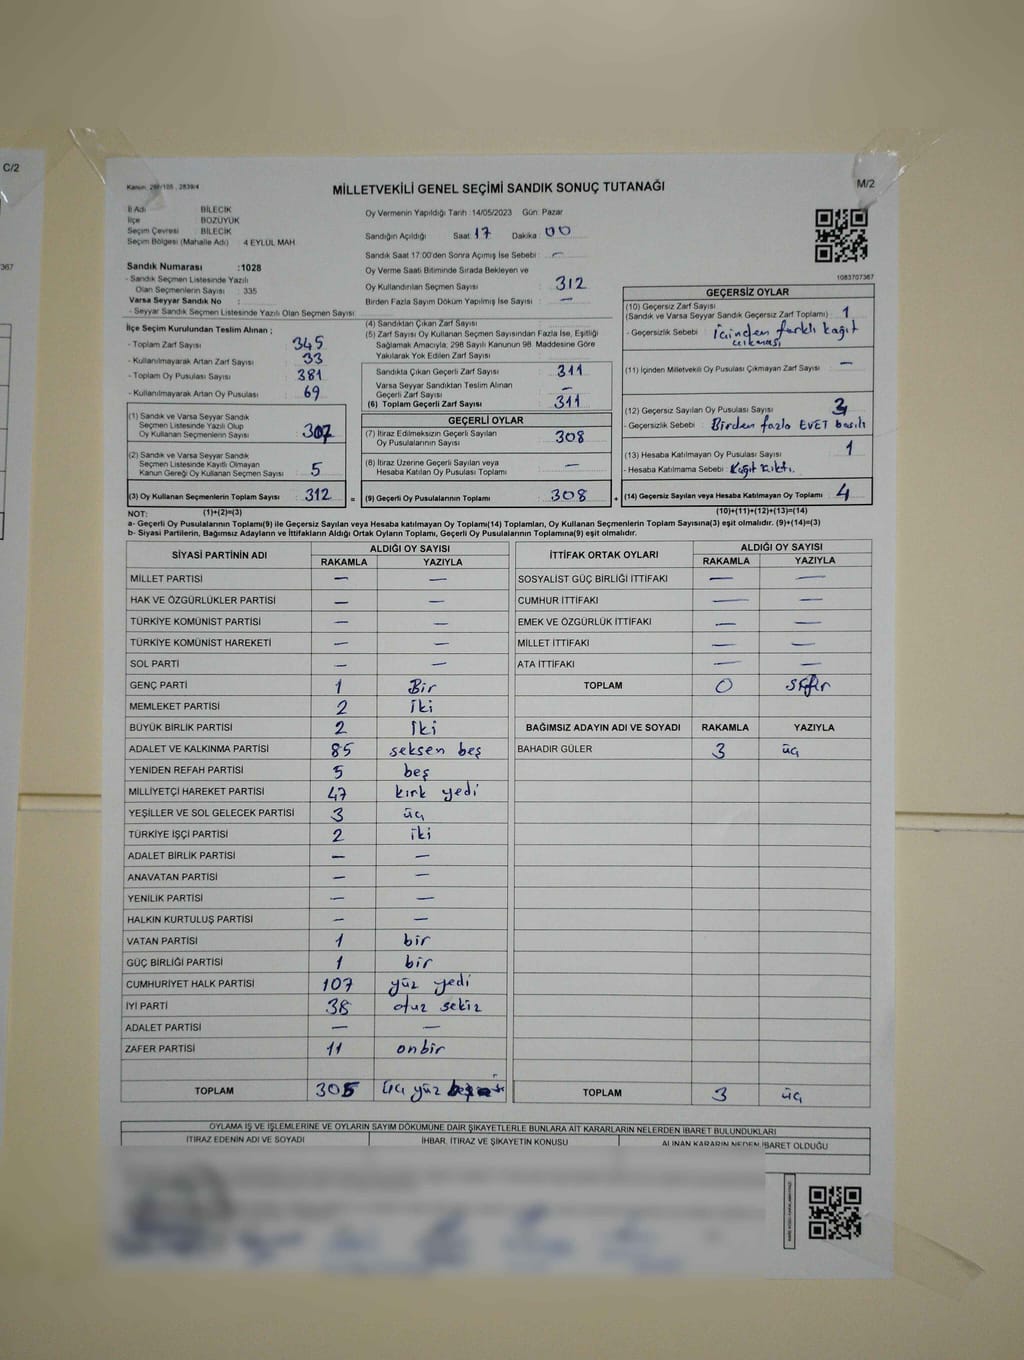 C/2
367
Kanun: 298/105 , 2839/4
MİLLETVEKİLİ GENEL SEÇİMİ SANDIK SONUÇ TUTANAĞI
M/2
İl Adı BİLECİK
İlçe BOZÜYÜK
Seçim Çevresi BİLECİK
Seçim Bölgesi (Mahalle Adı) 4 EYLÜL MAH
Oy Vermenin Yapıldığı Tarih :14/05/2023 Gün: Pazar
Sandığın Açıldığı Saat: 17 Dakika : 00
Sandık Saat 17:00'den Sonra Açımış İse Sebebi : —
Sandık Numarası :1028
- Sandık Seçmen Listesinde Yazılı
Olan Seçmenlerin Sayısı : 335
Varsa Seyyar Sandık No :
- Seyyar Sandık Seçmen Listesinde Yazılı Olan Seçmen Sayısı :
Oy Verme Saati Bitiminde Sırada Bekleyen ve
Oy Kullandırılan Seçmen Sayısı : 312
Birden Fazla Sayım Döküm Yapılmış İse Sayısı : —
1083707367
İlçe Seçim Kurulundan Teslim Alınan ;
- Toplam Zarf Sayısı : 345
- Kullanılmayarak Artan Zarf Sayısı : 33
- Toplam Oy Pusulası Sayısı : 381
- Kullanılmayarak Artan Oy Pusulası : 69
(1) Sandık ve Varsa Seyyar Sandık
Seçmen Listesinde Yazılı Olup
Oy Kullanan Seçmenlerin Sayısı : 307
(2) Sandık ve Varsa Seyyar Sandık
Seçmen Listesinde Kayıtlı Olmayan
Kanun Gereği Oy Kullanan Seçmen Sayısı : 5
(3) Oy Kullanan Seçmenlerin Toplam Sayısı : 312 =
(4) Sandıktan Çıkan Zarf Sayısı :
(5) Zarf Sayısı Oy Kullanan Seçmen Sayısından Fazla İse, Eşitliği
Sağlamak Amacıyla; 298 Sayılı Kanunun 98. Maddesine Göre
Yakılarak Yok Edilen Zarf Sayısı :
Sandıkta Çıkan Geçerli Zarf Sayısı : 311
Varsa Seyyar Sandıktan Teslim Alınan
Geçerli Zarf Sayısı : —
(6) Toplam Geçerli Zarf Sayısı : 311
GEÇERLİ OYLAR
(7) İtiraz Edilmeksizin Geçerli Sayılan
Oy Pusulalarının Sayısı : 308
(8) İtiraz Üzerine Geçerli Sayılan veya
Hesaba Katılan Oy Pusulası Toplamı : —
(9) Geçerli Oy Pusulalarının Toplamı : 308 +
GEÇERSİZ OYLAR
(10) Geçersiz Zarf Sayısı
(Sandık ve Varsa Seyyar Sandık Geçersiz Zarf Toplamı) : 1
- Geçersizlik Sebebi : İçinden farklı kağıt
çıkması
(11) İçinden Milletvekili Oy Pusulası Çıkmayan Zarf Sayısı : —
(12) Geçersiz Sayılan Oy Pusulası Sayısı :
- Geçersizlik Sebebi : Birden fazla EVET basılı
(13) Hesaba Katılmayan Oy Pusulası Sayısı : 1
- Hesaba Katılmama Sebebi : Kağıt
(14) Geçersiz Sayılan veya Hesaba Katılmayan Oy Toplamı : 4
NOT: (1)+(2)=(3) (10)+(11)+(12)+(13)=(14)
a- Geçerli Oy Pusulalarının Toplamı(9) ile Geçersiz Sayılan veya Hesaba katılmayan Oy Toplamı(14) Toplamları, Oy Kullanan Seçmenlerin Toplam Sayısına(3) eşit olmalıdır. (9)+(14)=(3)
b- Siyasi Partilerin, Bağımsız Adayların ve İttifakların Aldığı Ortak Oyların Toplamı, Geçerli Oy Pusulalarının Toplamına(9) eşit olmalıdır.
SİYASİ PARTİNİN ADI ALDIĞI OY SAYISI
RAKAMLA YAZIYLA
MİLLET PARTİSİ — —
HAK VE ÖZGÜRLÜKLER PARTİSİ — —
TÜRKİYE KOMÜNİST PARTİSİ — —
TÜRKİYE KOMÜNİST HAREKETİ — —
SOL PARTİ — —
GENÇ PARTİ 1 Bir
MEMLEKET PARTİSİ 2 İki
BÜYÜK BİRLİK PARTİSİ 2 İki
ADALET VE KALKINMA PARTİSİ 85 seksen beş
YENİDEN REFAH PARTİSİ 5 beş
MİLLİYETÇİ HAREKET PARTİSİ 47 kırk yedi
YEŞİLLER VE SOL GELECEK PARTİSİ 3 üç
TÜRKİYE İŞÇİ PARTİSİ 2 iki
ADALET BİRLİK PARTİSİ — —
ANAVATAN PARTİSİ — —
YENİLİK PARTİSİ — —
HALKIN KURTULUŞ PARTİSİ — —
VATAN PARTİSİ 1 bir
GÜÇ BİRLİĞİ PARTİSİ 1 bir
CUMHURİYET HALK PARTİSİ 107 yüz yedi
İYİ PARTİ 38 otuz sekiz
ADALET PARTİSİ — —
ZAFER PARTİSİ 11 onbir
TOPLAM 305 üç yüz beş
İTTİFAK ORTAK OYLARI ALDIĞI OY SAYISI
RAKAMLA YAZIYLA
SOSYALİST GÜÇ BİRLİĞİ İTTİFAKI — —
CUMHUR İTTİFAKI — —
EMEK VE ÖZGÜRLÜK İTTİFAKI — —
MİLLET İTTİFAKI — —
ATA İTTİFAKI — —
TOPLAM 0 sıfır
BAĞIMSIZ ADAYIN ADI VE SOYADI RAKAMLA YAZIYLA
BAHADIR GÜLER 3 üç
TOPLAM 3 üç
OYLAMA İŞ VE İŞLEMLERİNE VE OYLARIN SAYIM DÖKÜMÜNE DAİR ŞİKAYETLERLE BUNLARA AİT KARARLARIN NELERDEN İBARET BULUNDUKLARI
İTİRAZ EDENİN ADI VE SOYADI İHBAR, İTİRAZ VE ŞİKAYETİN KONUSU ALINAN KARARIN NEDEN İBARET OLDUĞU